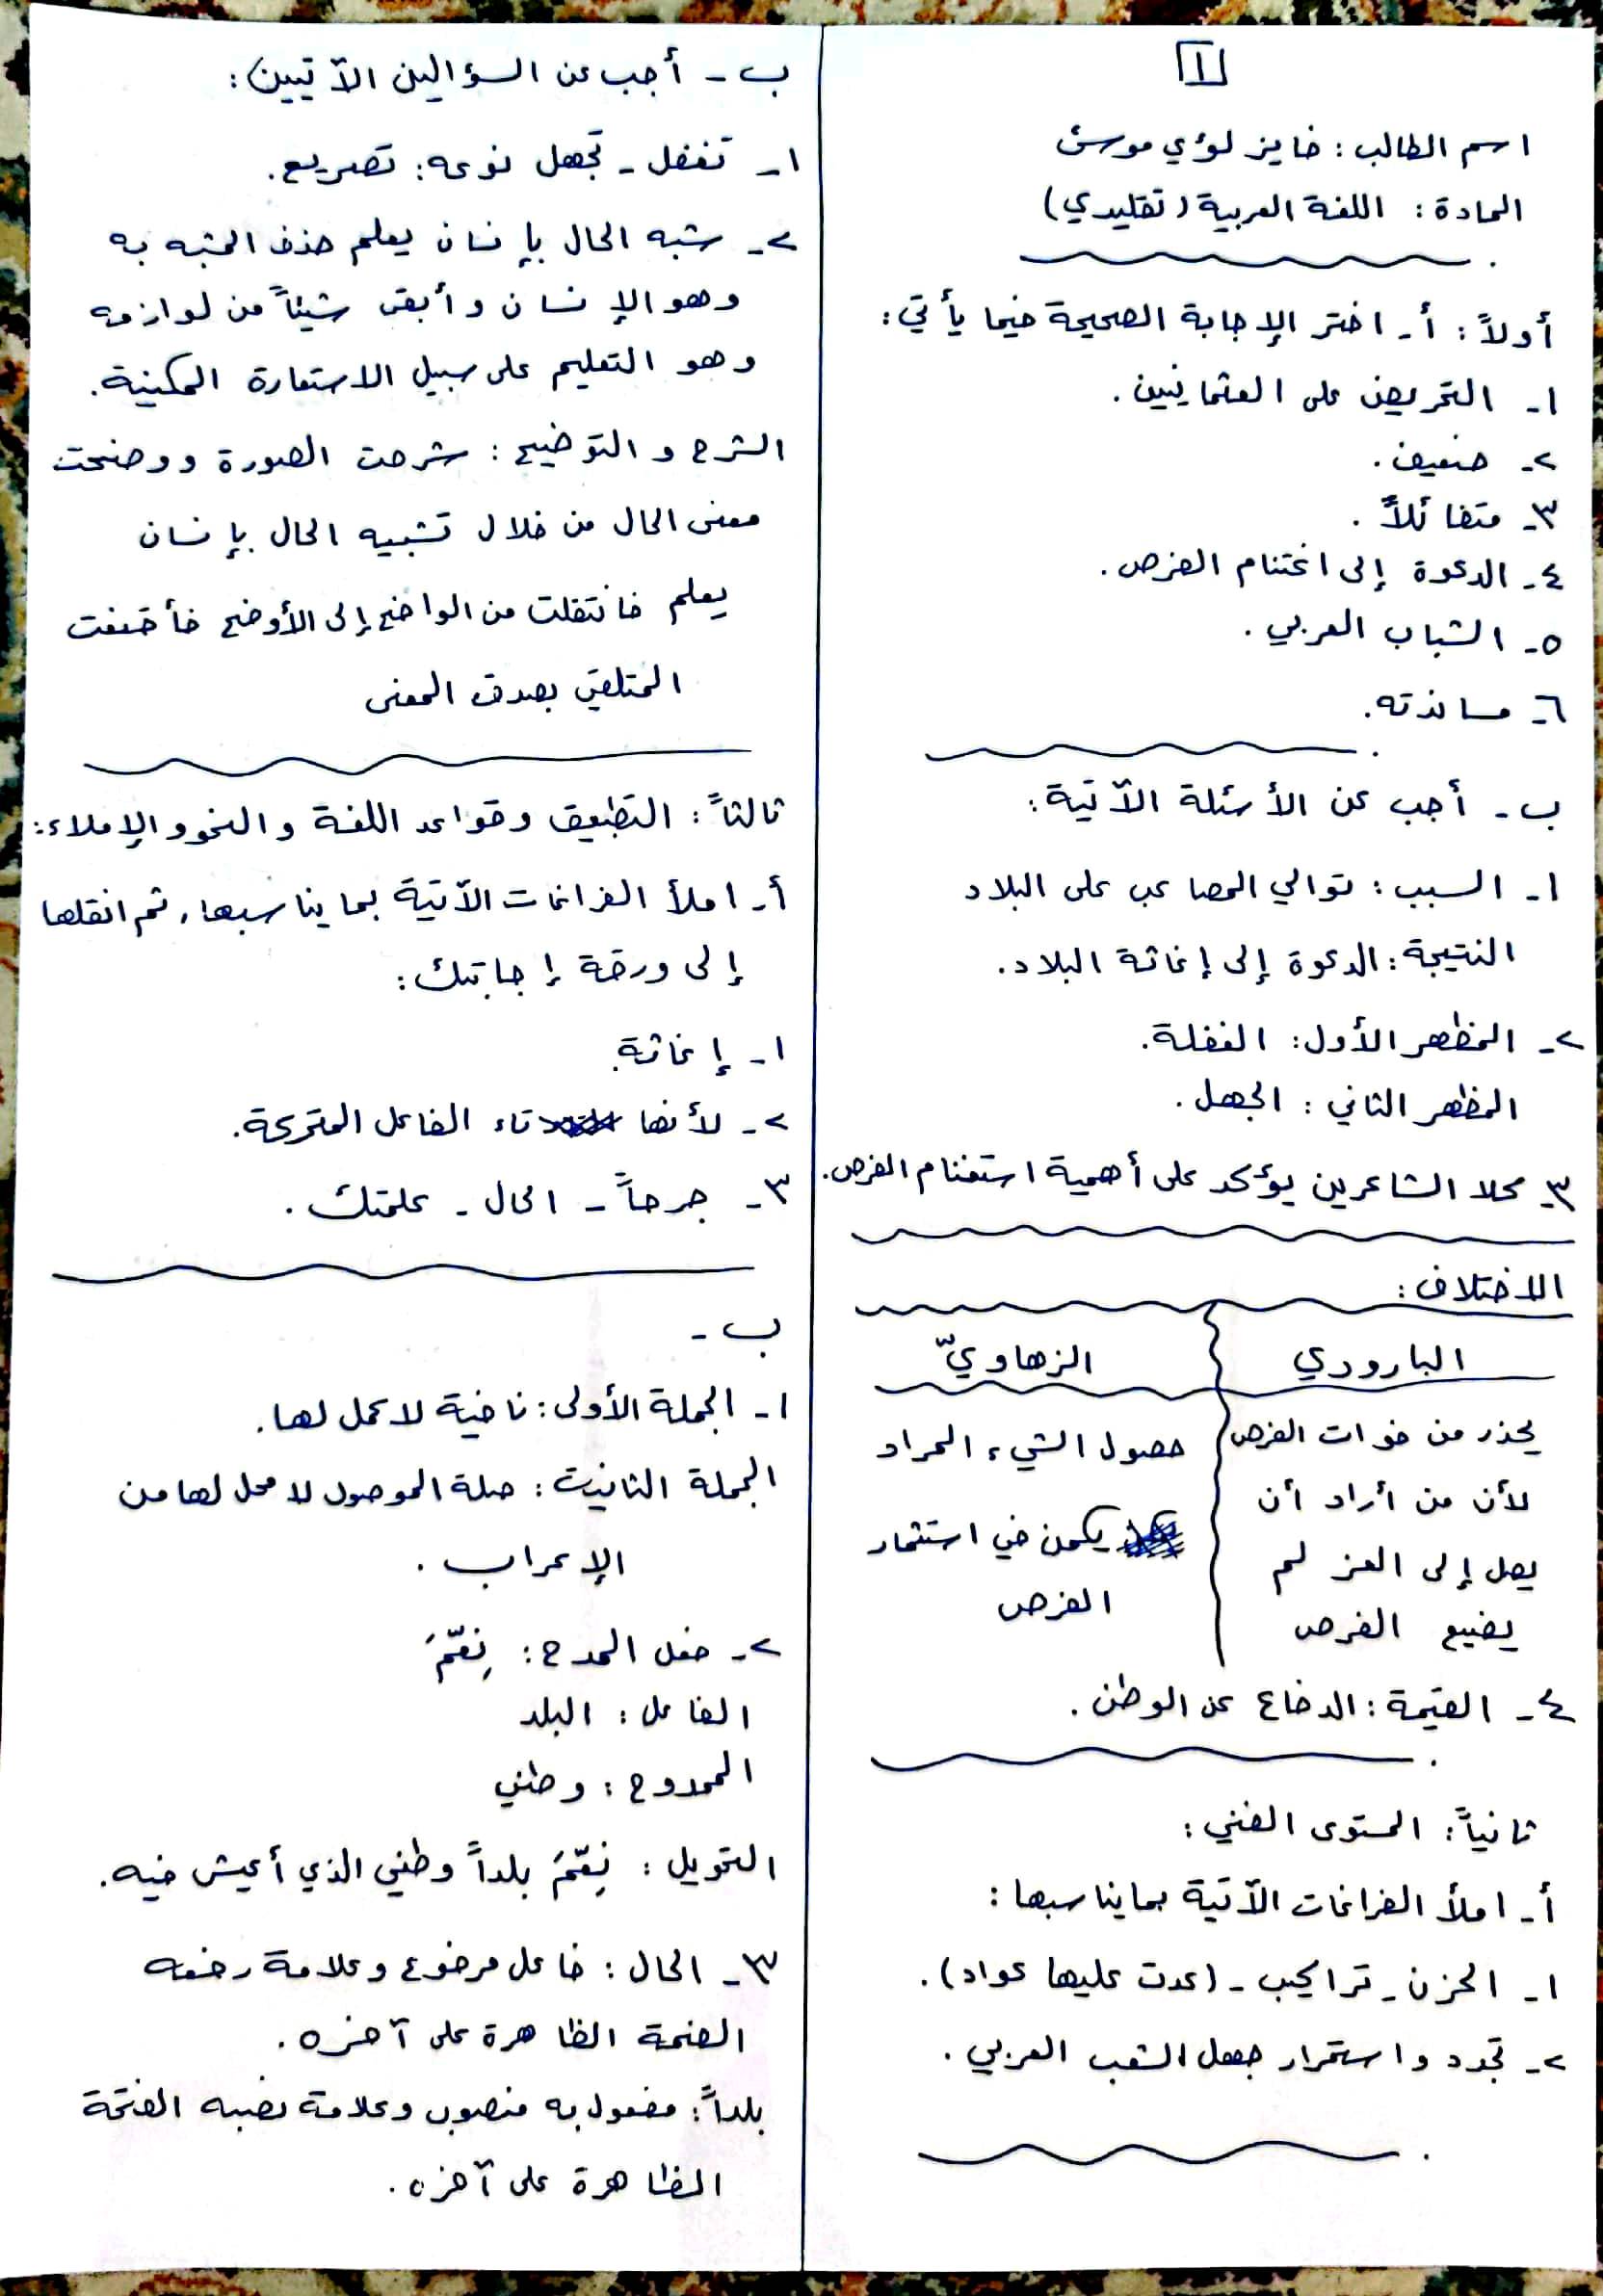 ١
اسم الطالب : فايز لؤي موسى
المادة : اللغة العربية (تقليدي)
أولاً : أ - اختر الإجابة الصحيحة فيما يأتي :
١- التحريض على العثمانيين .
٢- ضعيف .
٣- متفائلاً .
٤- الدعوة إلى اغتنام الفرص .
٥- الشباب العربي .
٦- مساندته .
ب - أجب عن الأسئلة الآتية :
١- السبب : توالي المصاعب على البلاد
النتيجة : الدعوة إلى إغاثة البلاد .
٢- المظهر الأول : الغفلة .
المظهر الثاني : الجهل .
٣- كلا الشاعرين يؤكد على أهمية استغنام الفرص .
الاختلاف :
البارودي
الزهاويّ
يحذر من فوات الفرص
لأن من أراد أن
يصل إلى العز لم
يضيع الفرص
حصول الشيء المراد
يكمن في استثمار
الفرص
٤- القيمة : الدفاع عن الوطن .
ثانياً : المستوى الفني :
أ - املأ الفراغات الآتية بما يناسبها :
١- الحزن - تراكيب - (عدت عليها عواد) .
٢- تجدد واستمرار جهل الشعب العربي .
ب - أجب عن السؤالين الآتيين :
١- تغفل - تجهل نوعه : تصريع .
٢- شبه الحال بإنسان يعلم حذف المشبه به
وهو الإنسان وأبقى شيئاً من لوازمه
وهو التعليم على سبيل الاستعارة المكنية .
الشرح و التوضيح : شرحت الصورة ووضحت
معنى الحال من خلال تشبيه الحال بإنسان
يعلم فانتقلت من الواضح إلى الأوضح فأقنعت
المتلقي بصدق المعنى
ثالثاً : التطبيق وقواعد اللغة والنحو والإملاء :
أ - املأ الفراغات الآتية بما يناسبها ، ثم انقلها
إلى ورقة إجابتك :
١- إغاثة .
٢- لأنها تاء الفاعل المتحركة .
٣- جرحاً - الحال - علمتك .
ب -
١- الجملة الأولى : نافية لا عمل لها .
الجملة الثانية : صلة الموصول لا محل لها من
الإعراب .
٢- فعل المدح : نِعْمَ
الفاعل : البلد
الممدوح : وطني
التحويل : نِعْمَ بلداً وطني الذي أعيش فيه .
٣- الحال : فاعل مرفوع وعلامة رفعه
الضمة الظاهرة على آخره .
بلداً : مفعول به منصوب وعلامة نصبه الفتحة
الظاهرة على آخره .